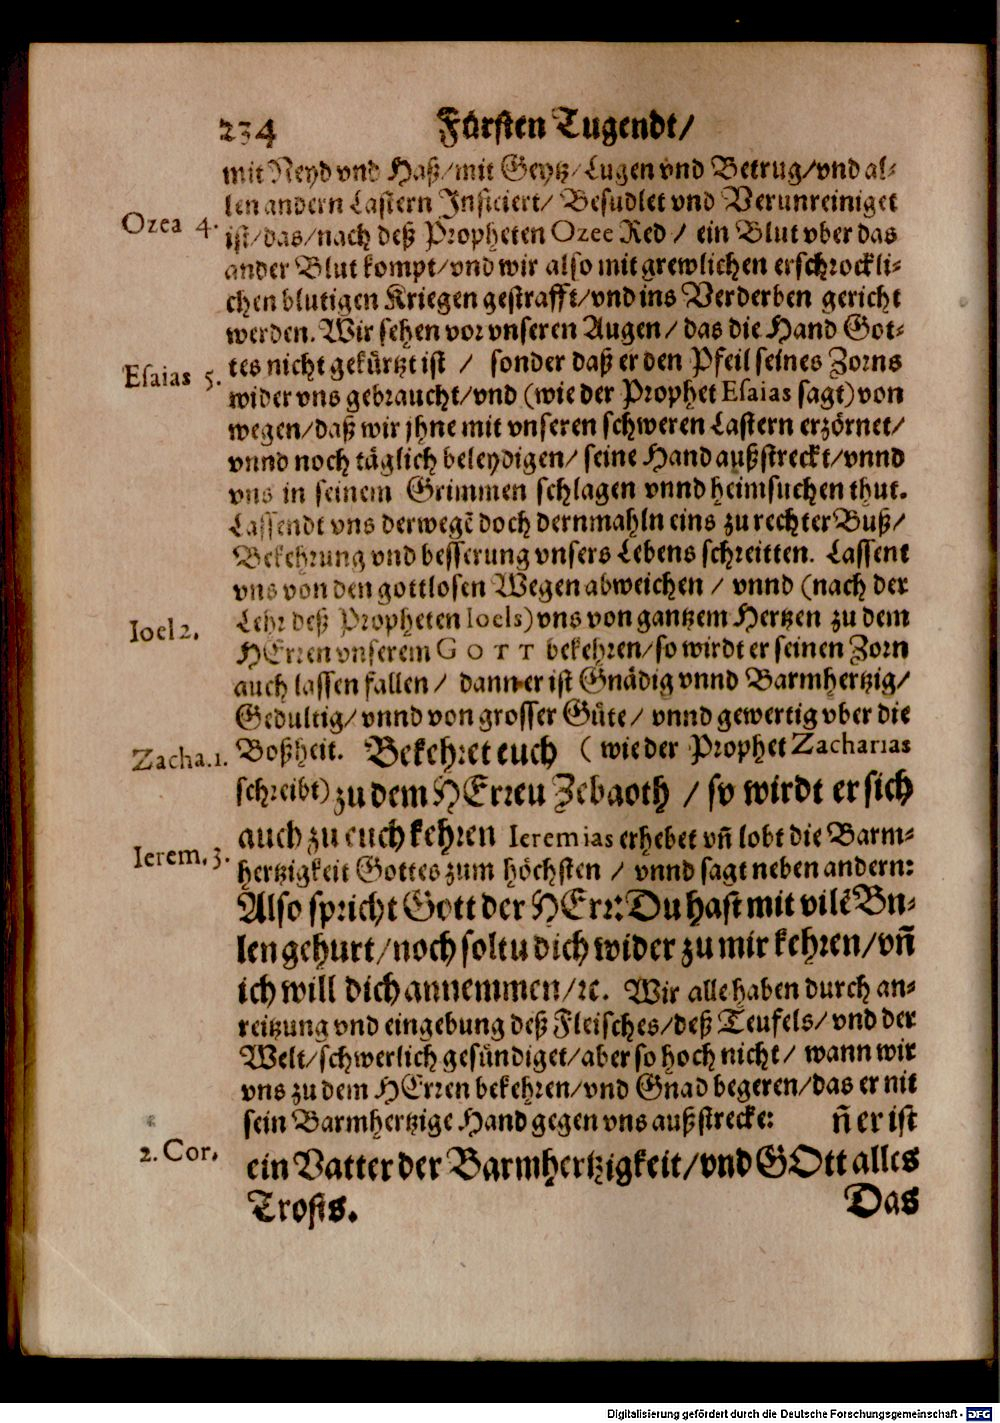 234 Fürsten Tugendt/
mit Neyd vnd Haß/mit Geytz/Lugen vnd Betrug/vnd al-
len andern Lastern Inficiert/ Besudlet vnd Verunreiniget
Ozea 4.
ist/das/nach deß Propheten Ozee Red / ein Blut vber das
ander Blut kompt/vnd wir also mit grewlichen erschrockli-
chen blutigen Kriegen gestrafft/vnd ins Verderben gericht
werden. Wir sehen vor vnseren Augen/ das die Hand Got-
tes nicht gekürtzt ist / sonder daß er den Pfeil seines Zorns
Esaias 5.
wider vns gebraucht/vnd (wie der Prophet Esaias sagt) von
wegen/daß wir jhne mit vnseren schweren Lastern erzörnet/
vnnd noch täglich beleydigen/ seine Hand außstreckt/vnnd
vns in seinem Grimmen schlagen vnnd heimsuchen thut.
Lassendt vns derwegẽ doch dernmahln eins zu rechter Buß/
Bekehrung vnd besserung vnsers Lebens schreitten. Lassent
vns von den gottlosen Wegen abweichen / vnnd (nach der
Ioel 2.
Lehr deß Propheten Ioels) vns von gantzem Hertzen zu dem
HErren vnserem GOTT bekehren/so wirdt er seinen Zorn
auch lassen fallen/ dann er ist Gnädig vnnd Barmhertzig/
Gedultig/ vnnd von grosser Güte/ vnnd gewertig vber die
Zacha.1.
Boßheit. Bekehret euch ( wie der Prophet Zacharias
schreibt) zu dem HErreu Zebaoth / so wirdt er sich
auch zu euch kehren Ieremias erhebet vñ lobt die Barm-
Ierem. 3.
hertzigkeit Gottes zum höchsten / vnnd sagt neben andern:
Also spricht Gott der HErr: Du hast mit vilẽ Bu-
len gehurt/noch soltu dich wider zu mir kehren/vñ
ich will dich annemmen/ꝛc. Wir alle haben durch an-
reitzung vnd eingebung deß Fleisches/deß Teufels/ vnd der
Welt/schwerlich gesündiget/aber so hoch nicht/ wann wir
vns zu dem HErren bekehren/vnd Gnad begeren/das er nit
sein Barmhertzige Hand gegen vns außstrecke: ñ er ist
2. Cor.
ein Vatter der Barmhertzigkeit/vnd GOtt alles
Trosts.
Das
Digitalisierung gefördert durch die Deutsche Forschungsgemeinschaft - DFG